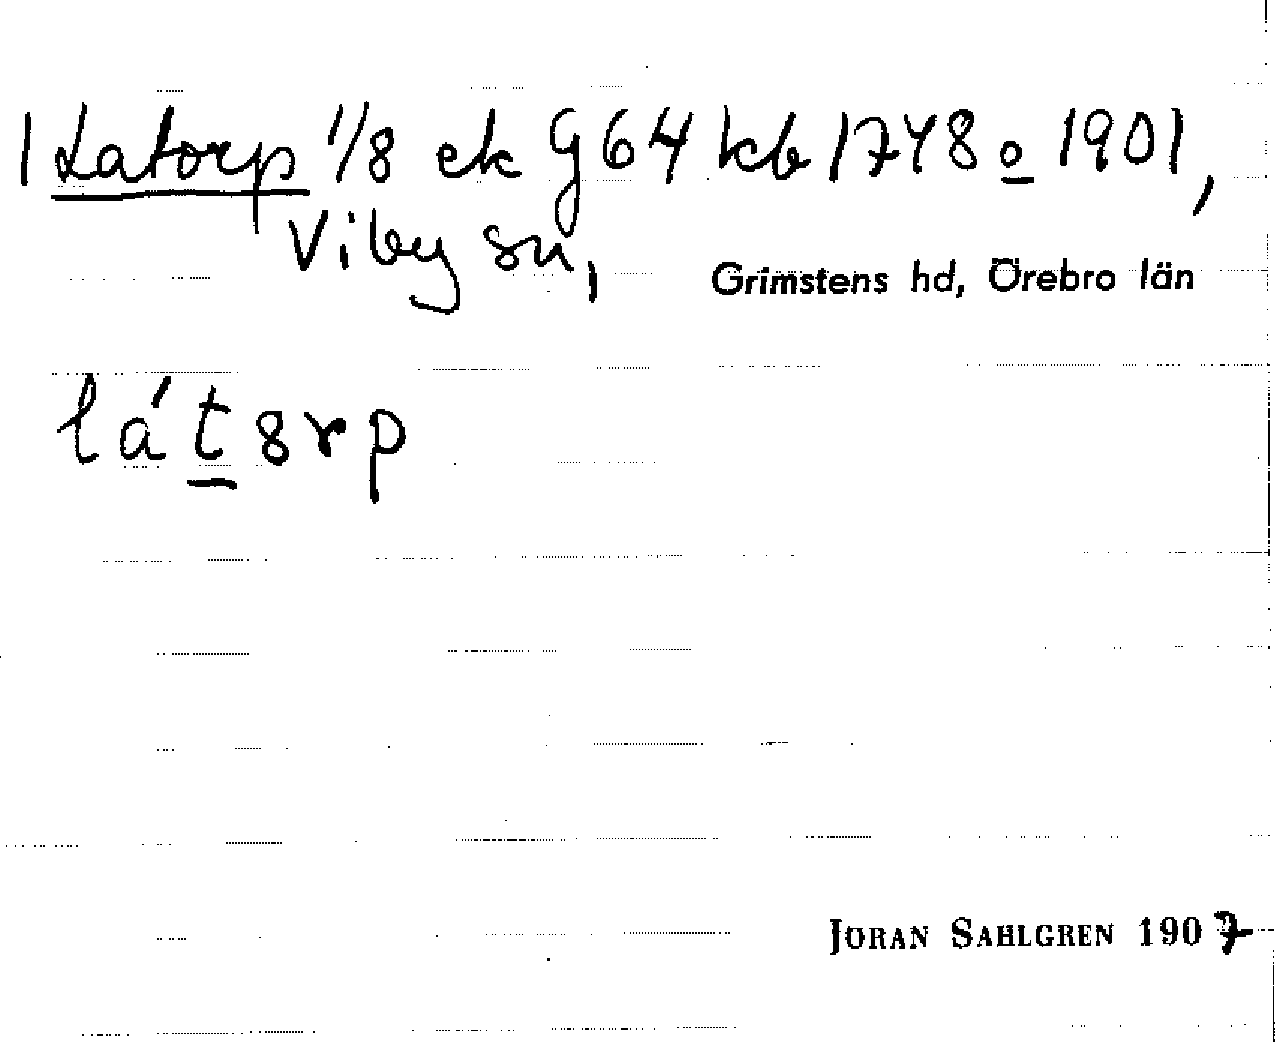 1 Latorp 1/8 ek G64 kb 1748 o 1901,
Viby sn,
Grimstens hd, Örebro län
lát8rp
JÖRAN SAHLGREN 1907